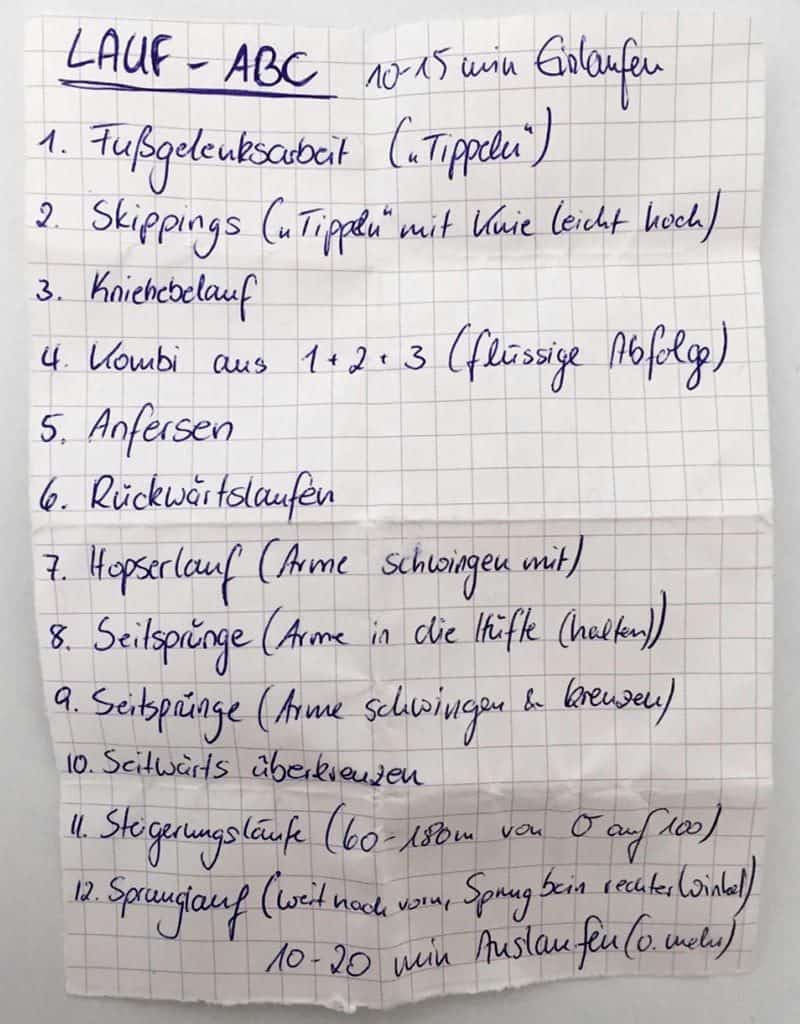 LAUF - ABC 10-15 min Einlaufen
1. Fußgelenksarbeit („Tippeln“)
2. Skippings („Tippeln“ mit Knie leicht hoch)
3. Kniehebelauf
4. Kombi aus 1 + 2 + 3 (flüssige Abfolge)
5. Anfersen
6. Rückwärtslaufen
7. Hopserlauf (Arme schwingen mit)
8. Seitsprünge (Arme in die Hüfte (halten))
9. Seitsprünge (Arme schwingen & kreuzen)
10. Seitwärts überkreuzen
11. Steigerungsläufe (60-180m von 0 auf 100)
12. Sprunglauf (weit nach vorn, Sprungbein rechter Winkel)
10-20 min Auslaufen (o. mehr)